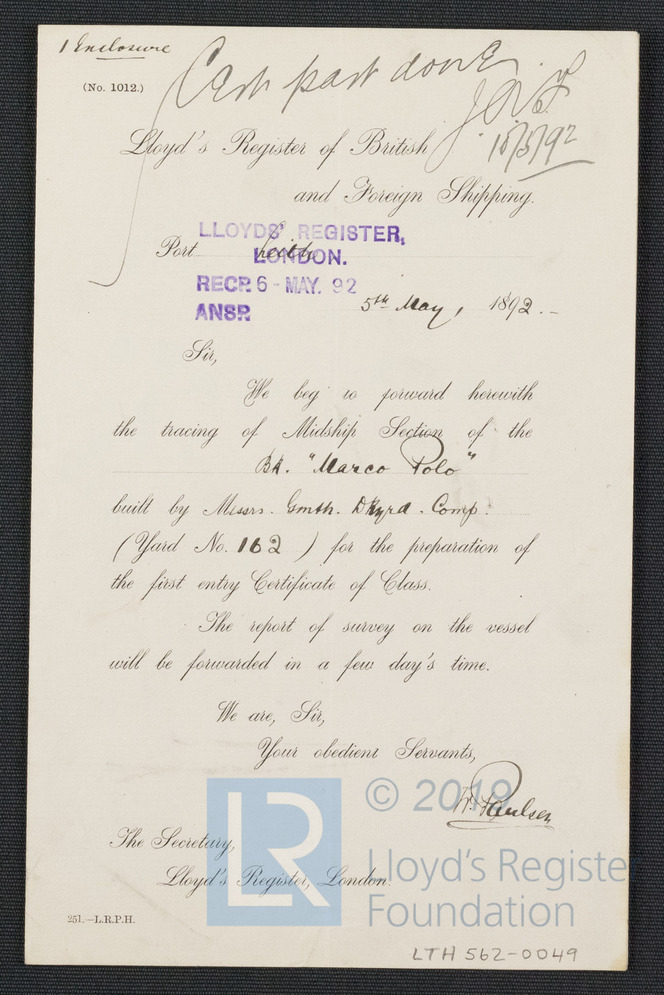 1 Enclosure
(No. 1012.)
Cert part done
15/5/92
Lloyd's Register of British
and Foreign Shipping.
LLOYDS' REGISTER,
Port Leith
LONDON.
RECP. 6 - MAY. 92
ANSP.
5th May, 1892.-
Sir,
We beg to forward herewith
the tracing of Midship Section of the
Bk. "Marco Polo"
built by Messrs. Gmth. DKyrd. Comp.
(Yard No. 162) for the preparation of
the first entry Certificate of Class.
The report of survey on the vessel
will be forwarded in a few day's time.
We are, Sir,
Your obedient Servants,
Paulsen
© 2019
The Secretary,
Lloyd's Register, London.
LR
Lloyd's Registe
Foundation
251.-L.R.P.H.
LTH 562-0049